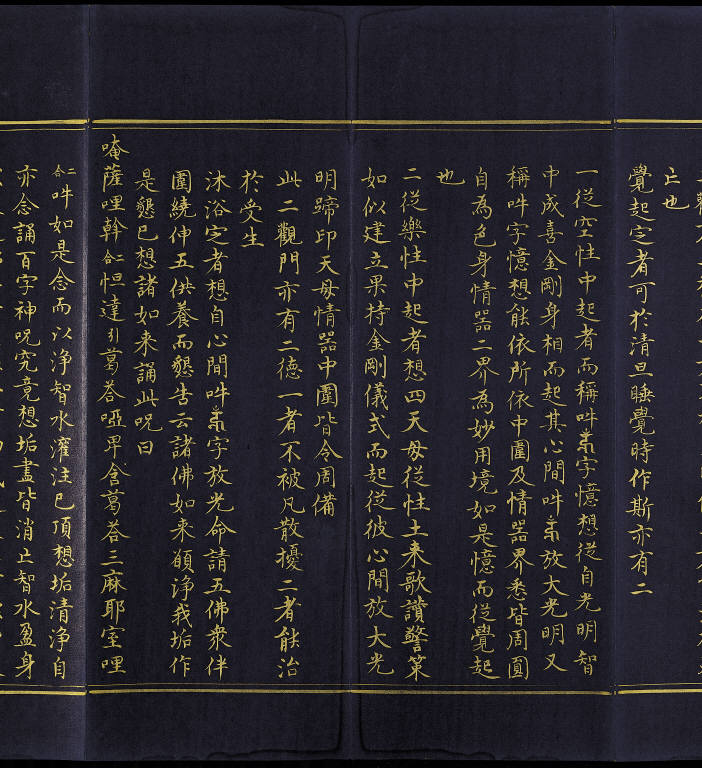 亡也
覺起定者可於清旦睡覺時作斯亦有二
一從空性中起者而稱吽字憶想從自光明智
中成善金剛身相而起其心間吽放大光明又
稱吽字憶想能依所依中圍及情器界悉皆周圓
自為色身情器二界為妙用境如是憶而從覺起
也
二從樂性中起者想四天母從性土來歌讚警策
如似建立果持金剛儀式而起從彼心間放大光
明蹄印天母情器中圍皆令周備
此二觀門亦有二德一者不被凡散擾二者能治
於受生
沐浴定者想自心間吽字放光命請五佛眾伴
圍繞伸五供養而懇告云諸佛如來願淨我垢作
是懇已想諸如來誦此咒曰
唵薩哩幹二合怛達引葛荅啞畢含葛荅三麻耶室哩
二合吽如是念而以淨智水灌注已頂想垢清淨自
亦念誦百字神咒究竟想垢盡皆消亡智水盈身